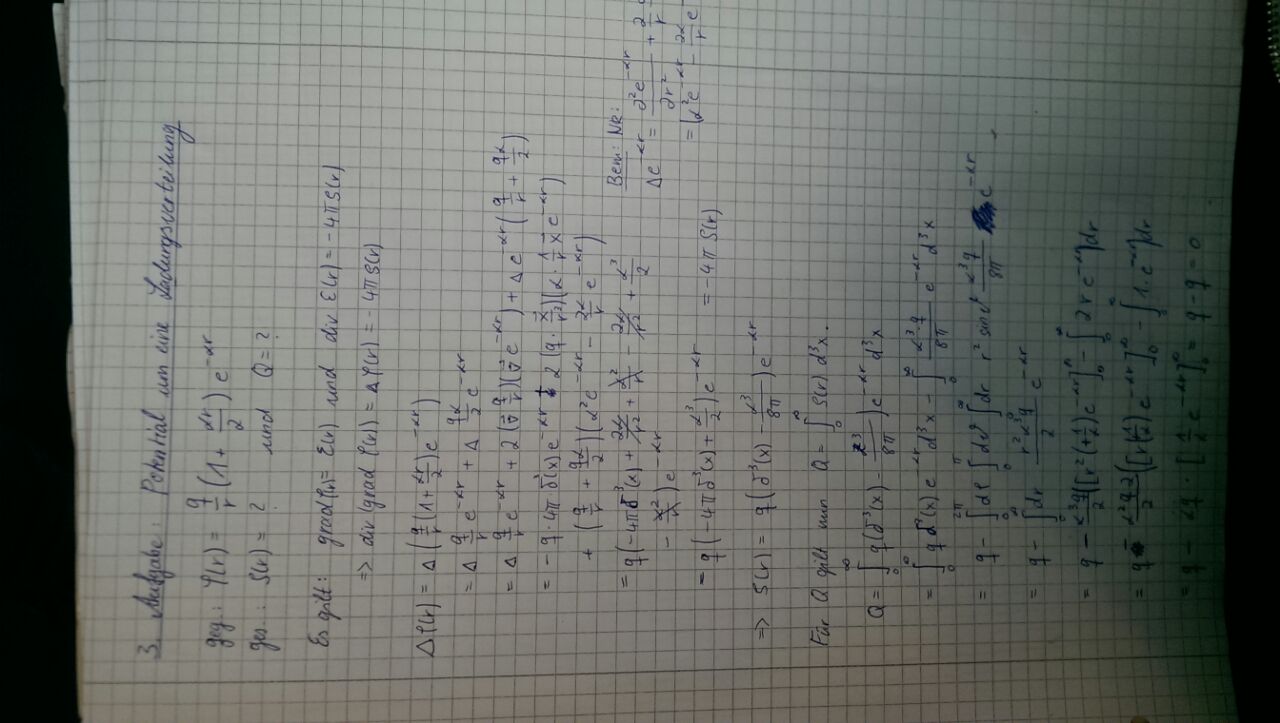 3. Aufgabe: Potential um eine Ladungsverteilung
geg.: φ(r) = q/r (1 + αr/2) e^{-αr}
ges.: ρ(r) = ? und Q = ?
Es gilt: grad φ(r) = E(r) und div E(r) = -4πρ(r)
=> div (grad φ(r)) = Δφ(r) = -4πρ(r)
Δφ(r) = Δ(q/r (1 + αr/2) e^{-αr})
= Δ q/r e^{-αr} + Δ qα/2 e^{-αr}
= Δ q/r e^{-αr} + 2(∇ q/r)(∇ e^{-αr}) + Δ e^{-αr} (q/r + qα/2)
= -q · 4π δ³(x) e^{-αr} + 2(q · x/r³)(α · 1/r x e^{-αr})
+ (q/r + qα/2)(α² e^{-αr} - 2α/r e^{-αr})
= q(-4πδ³(x) + 2α/r² + α²/r - 2α/r² + α³/2
- α²/r) e^{-αr}
Bem: NR:
Δe^{-αr} = ∂²e^{-αr}/∂r² + 2
= (α²e^{-αr} - 2α/r e
= q(-4πδ³(x) + α³/2) e^{-αr} = -4πρ(r)
=> ρ(r) = q(δ³(x) - α³/8π) e^{-αr}
Für Q gilt nun Q = ∫₀^∞ ρ(r) d³x.
Q = ∫₀^∞ q(δ³(x) - α³/8π) e^{-αr} d³x
= ∫₀^∞ q δ³(x) e^{-αr} d³x - ∫₀^∞ α³·q/8π e^{-αr} d³x
= q - ∫₀^{2π} dφ ∫₀^π dϑ ∫₀^∞ dr r² sin ϑ α³q/8π e^{-αr}
= q - ∫₀^∞ dr r²α³q/2 e^{-αr}
= q - α³q/2 ([r²(-1/α) e^{-αr}]₀^∞ - ∫₀^∞ 2r e^{-αr} dr
= q - α²q·2/2 ([r(-1/α) e^{-αr}]₀^∞ - ∫₀^∞ 1·e^{-αr} dr
= q - αq · [1/α e^{-αr}]₀^∞ = q - q = 0